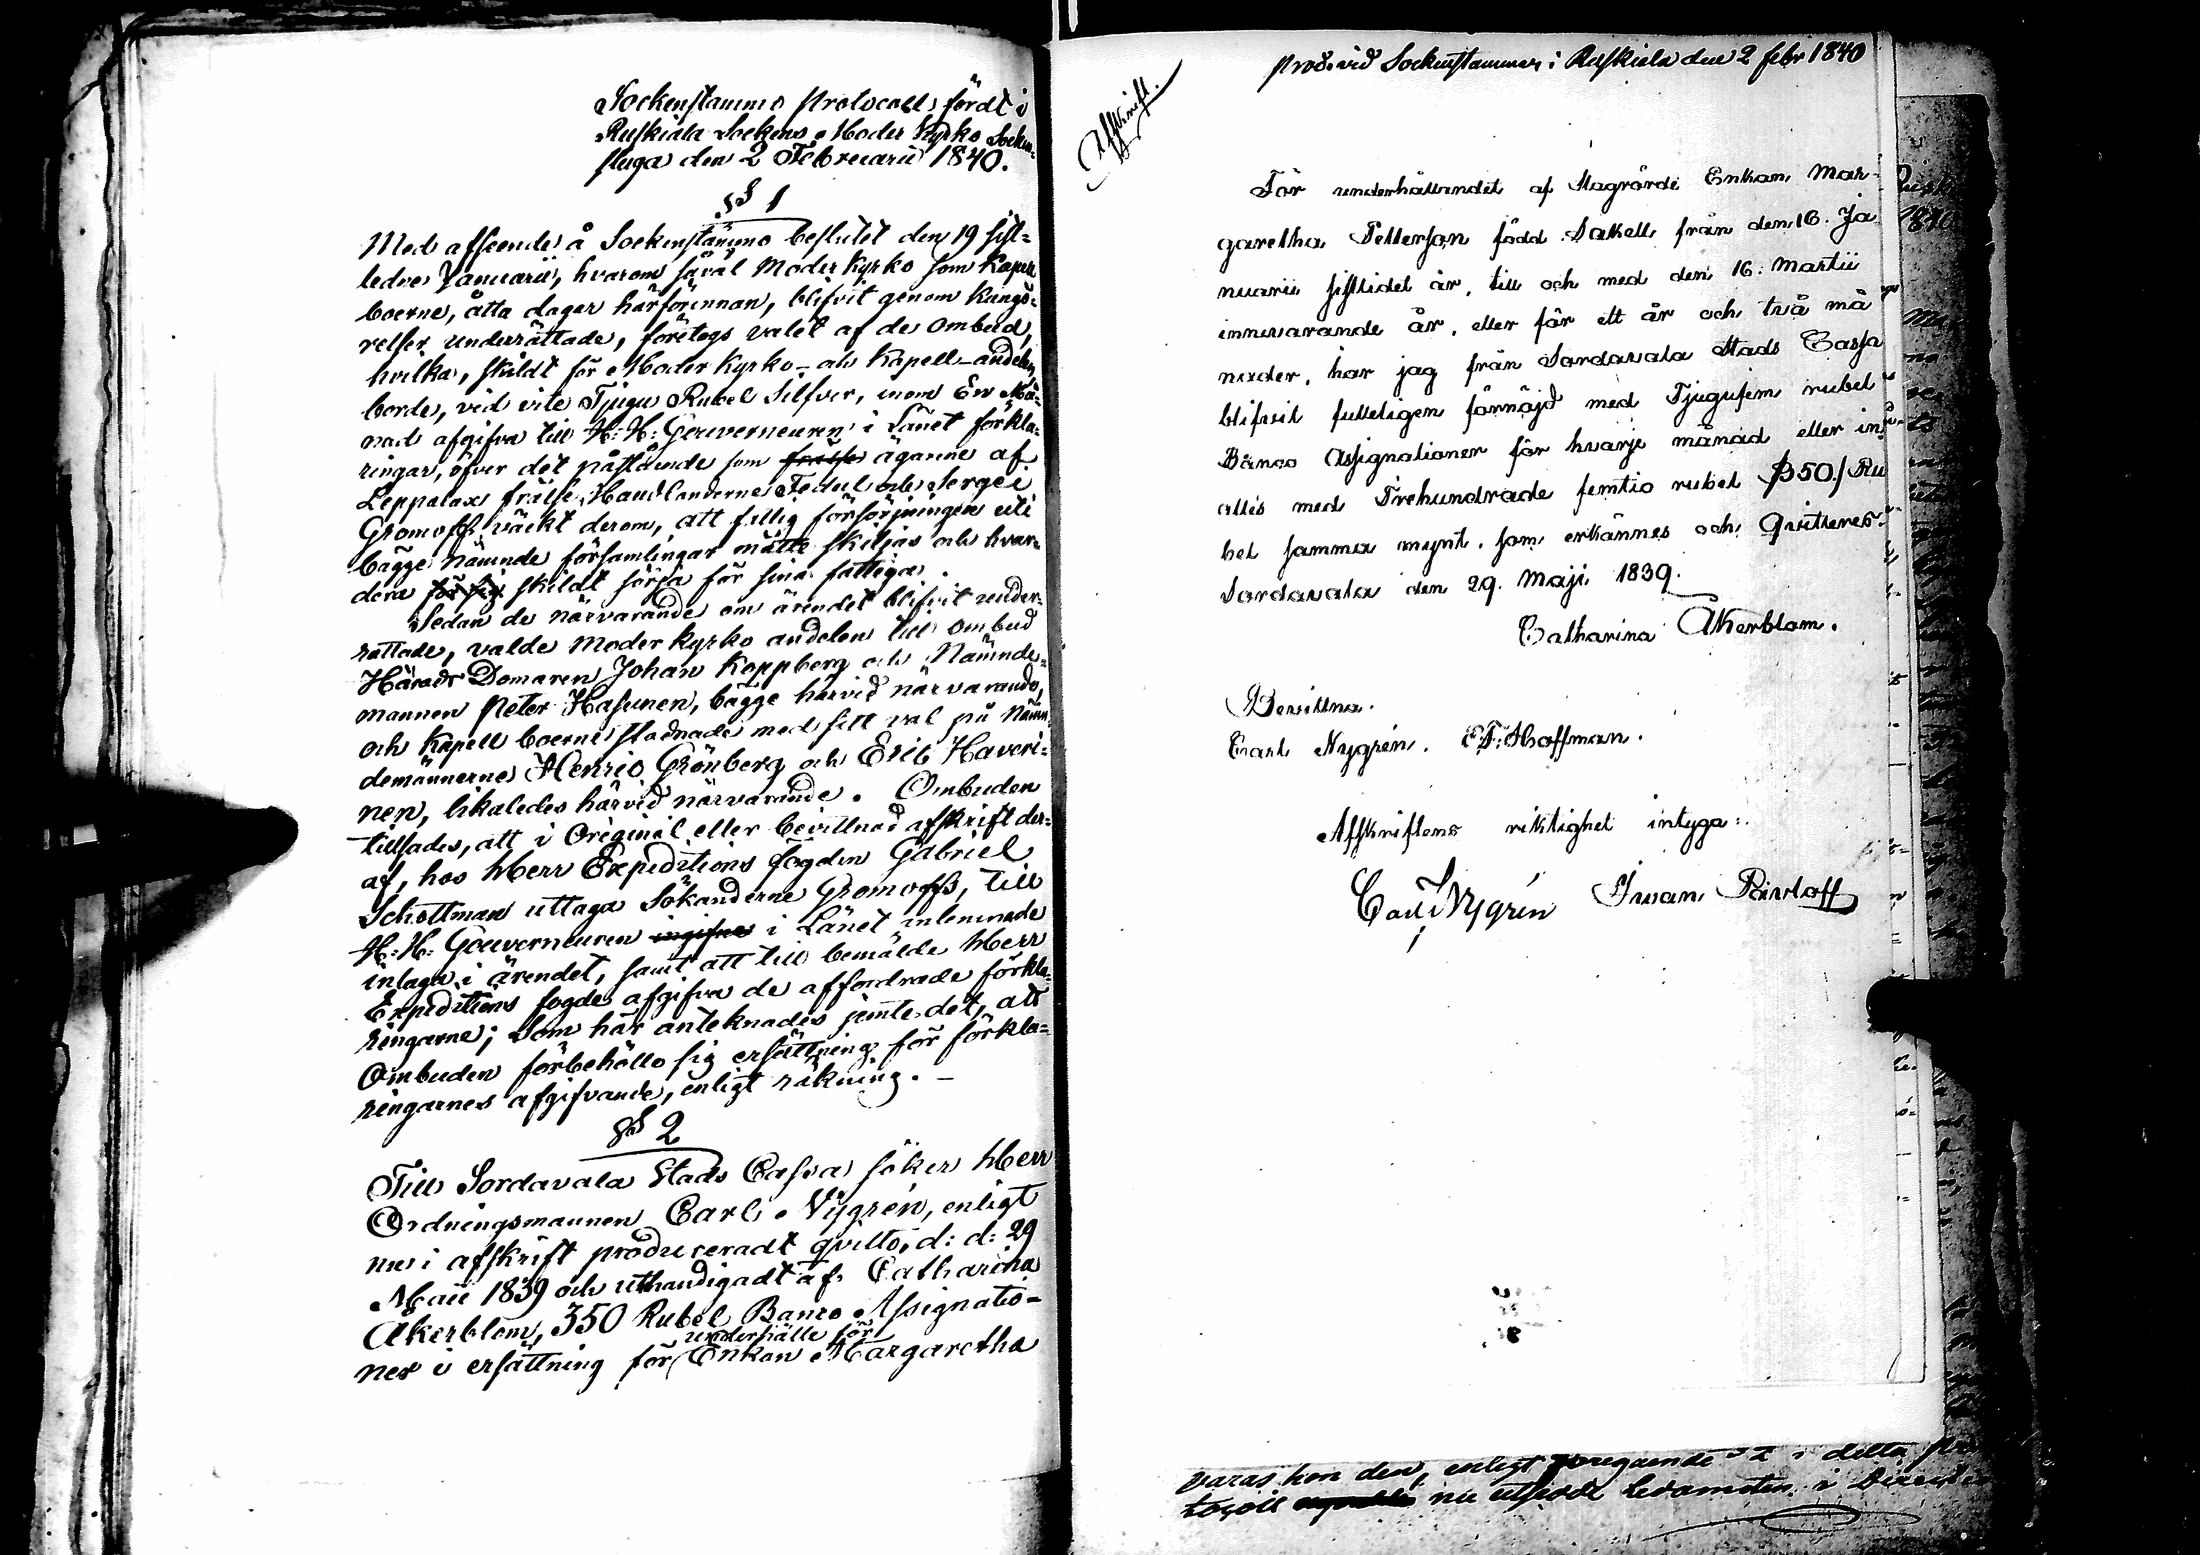 Sockenstämmo Protocoll, fördt i
Ruskiala Sockens Moder Kyrko Socken-
stuga den 2 Februarii 1840.
§ 1
Med afseende å Sockenstämmo beslutet den 19 sist-
ledne Januarii, hvarom såväl Moder kyrko som Kapell
boerne, åtta dagar härförinnan, blifvit genom kungö-
relser underrättade, företogs valet af de ombud,
hvilka, skildt för Moder Kyrko- och Kapell-andelen,
borde, vid vite Tjugu Rubel Silfver, inom En Må-
nad afgifva till H: H: Gouverneuren i Länet förkla-
ringar, öfver det påstående som frälse ägarene af
Leppälax frälse, Handlanderne Fedul och Sergei
Gromoff väckt derom, att fattig försörjningen uti
bägge nämnde församlingar måtte skiljas och hvar-
dera för sig skildt sörja för sina fattiga.
Sedan de närvarande om ärendet blifvit under-
rättade, valde Moder kyrko andelen till ombud
Härads Domaren Johan Koppberg och Nämnde-
mannen Peter Hasunen, bägge härvid närvarande,
och Kapell boerne stadnade med sitt val på Nämn-
demännerne Henric Grönberg och Eric Haveri-
nen, likaledes härvid närvarande. Ombuden
tillsades, att i Original eller bevittnad afskrift der-
af, hos Herr Expeditions fogden Gabriel
Schottman uttaga Sökanderne Gromoffs, till
H: H: Gouverneuren ingifne i Länet inlemnade
inlaga i ärendet, samt att till bemälde Herr
Expeditions fogde afgifva de affordrade förkla-
ringarne; Som här anteknades jemte det, att
Ombuden förbehöllo sig ersättning för förkla-
ringarnes afgifvande, enligt räkning. -
§ 2
Till Sordavala Stads Cassa söker Herr
Ordningsmannen Carl Nygrén, enligt
nu i afskrift produceradt qvitto, d: d: 29
Maii 1839 och uthandigadt af Catharina
Åkerblom, 350 Rubel Banco Assignatio-
underhålle för
ner i ersättning för Enkan Margaretha
Prod. vid Sockenstämman i Ruskiala den 2 febr 1840
Afskrift.
För underhållandet af Enkan Mar-
garetha Petterson född Sakell från den 16. Ja
nuarii sistlidet år, till och med den 16: Martii
innevarande år, eller för ett år och två må
nader, har jag från Sordavala Stads Cassa
blifvit fulleligen förnöjd med Tjugufem rubel
Banco Assignationer för hvarje månad eller in
alles med Trehundrade femtio rubel 350./. Ru
bel samma mynt, som erkännes och Qvitteres.
Sordavala den 29. Maji 1839.
Catharina Åkerblom.
Bevittna.
Carl Nygrén. E.F. Hoffman.
Afskriftens riktighet intyga:
Carl Nygrén Iwan Pavloff
varas hon den, enligt föregående § 2 i detta pro
tocoll nu utsedde ledamoten i